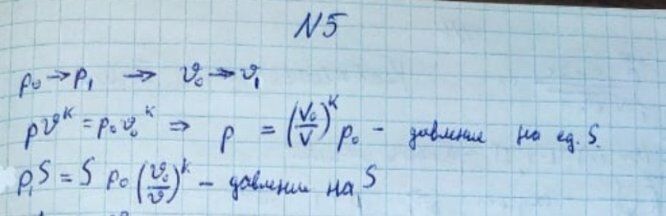 N5
p₀ → p₁ → v₀ → v₁
pv^k = p₀v₀^k ⇒ p = (V₀/V)^k p₀ – давление на ед. S.
p₁S = S p₀ (v₀/v)^k – давление на S